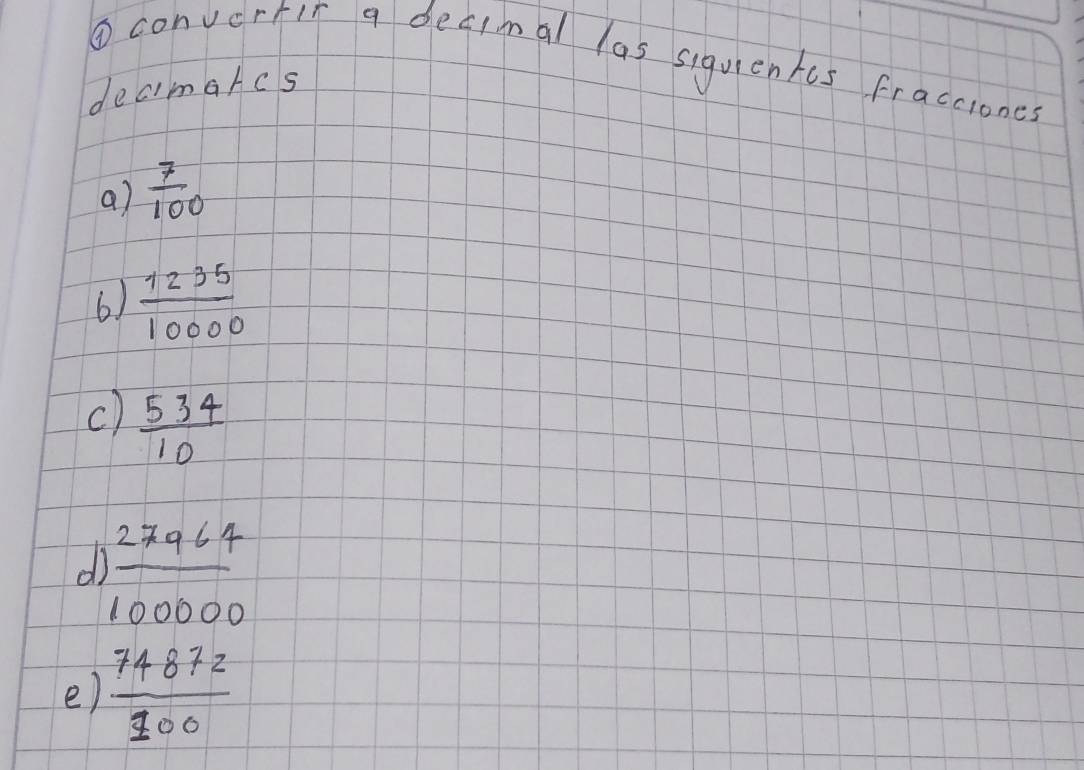 ① convertir a decimal las siguientes fracciones
decimales
a) 7/100
b) 1235/10000
c) 534/10
d) 27964/100000
e) 74872/100